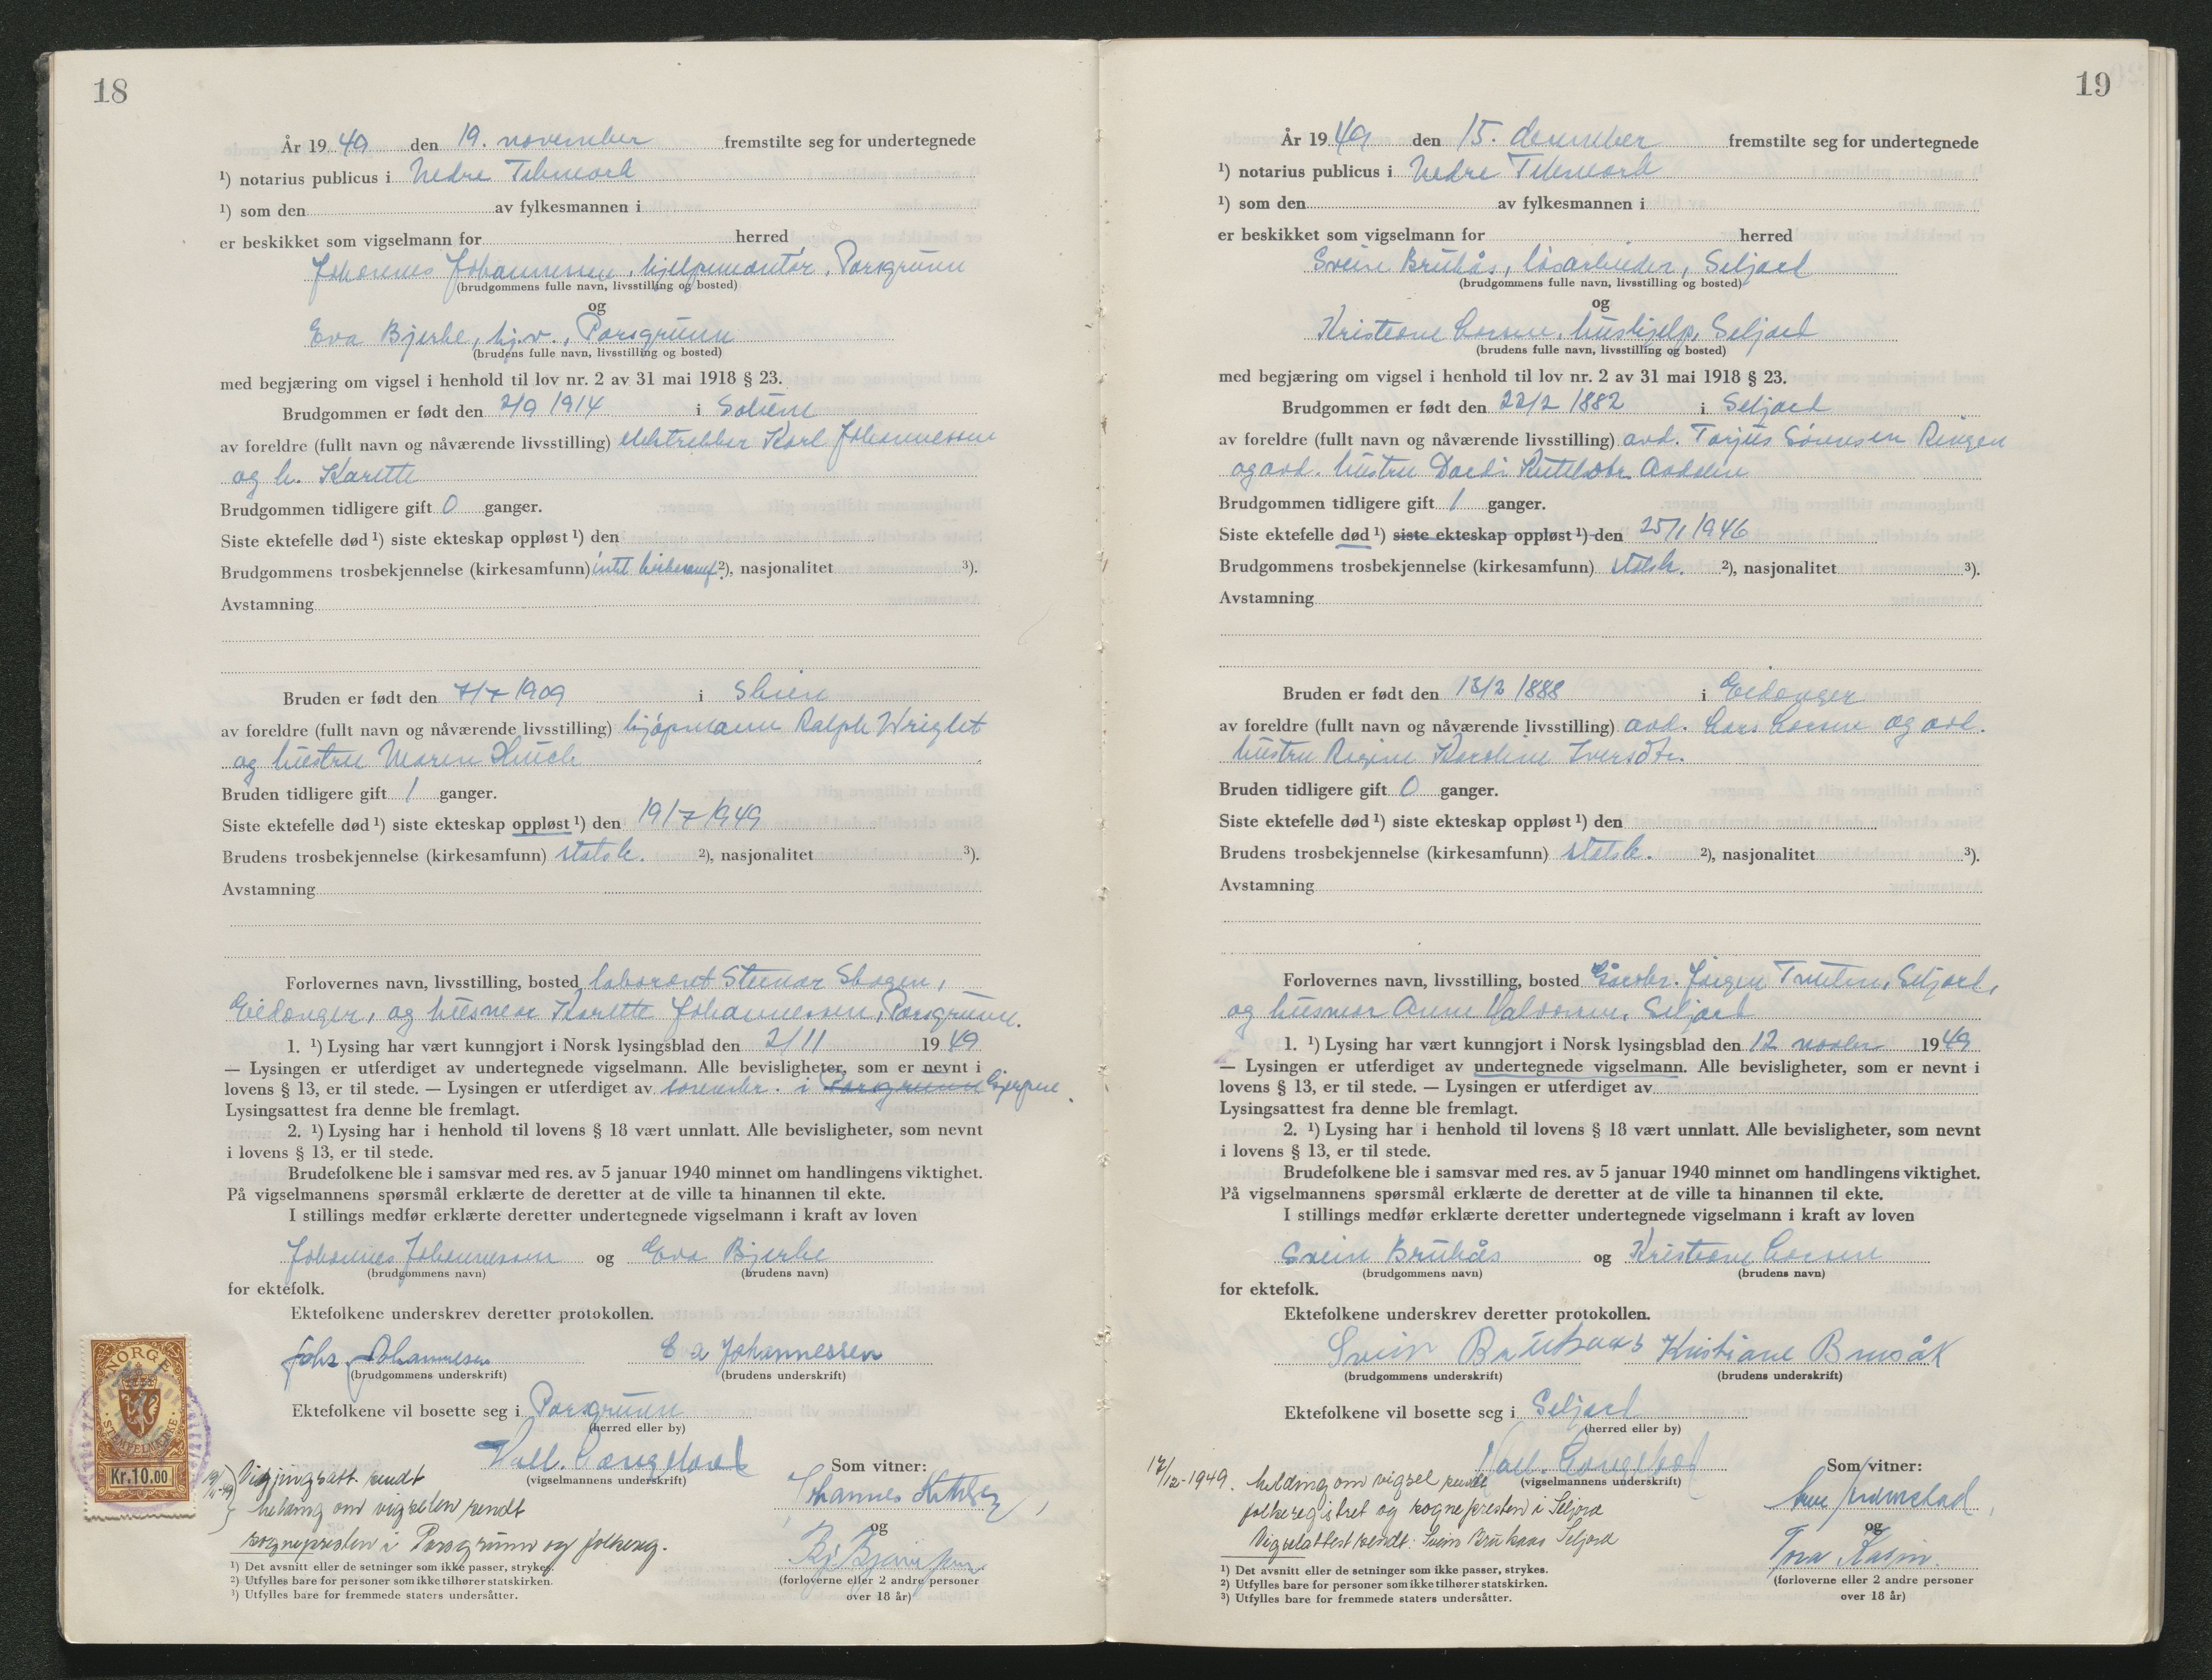 18
År 1949 den 19. november fremstilte seg for undertegnede
¹) notarius publicus i Nedre Telemark
¹) som den av fylkesmannen i
er beskikket som vigselmann for herred
Johannes Johannessen, hjelpemontør, Porsgrunn
(brudgommens fulle navn, livsstilling og bosted)
og
Eva Bjerke, hj.v., Porsgrunn
(brudens fulle navn, livsstilling og bosted)
med begjæring om vigsel i henhold til lov nr. 2 av 31 mai 1918 § 23.
Brudgommen er født den 2/9 1914 i Solum
av foreldre (fullt navn og nåværende livsstilling) Karl Johannessen
og h. Karette
Brudgommen tidligere gift 0 ganger.
Siste ektefelle død ¹) siste ekteskap oppløst ¹) den
Brudgommens trosbekjennelse (kirkesamfunn) intet kirkesamf. ²), nasjonalitet ³).
Avstamning
Bruden er født den 7/7 1909 i Skien
av foreldre (fullt navn og nåværende livsstilling) kjøpmann Ralph Wright
og hustru Maren
Bruden tidligere gift 1 ganger.
Siste ektefelle død ¹) siste ekteskap oppløst ¹) den 19/7 1949
Brudens trosbekjennelse (kirkesamfunn) statsk. ²), nasjonalitet ³).
Avstamning
Forlovernes navn, livsstilling, bosted laborant Steinar Skogen,
Eidanger, og husmor Karette Johannessen, Porsgrunn.
1. ¹) Lysing har vært kunngjort i Norsk lysingsblad den 2/11 1949
— Lysingen er utferdiget av undertegnede vigselmann. Alle bevisligheter, som er nevnt i
lovens § 13, er til stede. — Lysingen er utferdiget av sorenskr. i Porsgrunn Gjerpen.
Lysingsattest fra denne ble fremlagt.
2. ¹) Lysing har i henhold til lovens § 18 vært unnlatt. Alle bevisligheter, som nevnt
i lovens § 13, er til stede.
Brudefolkene ble i samsvar med res. av 5 januar 1940 minnet om handlingens viktighet.
På vigselmannens spørsmål erklærte de deretter at de ville ta hinannen til ekte.
I stillings medfør erklærte deretter undertegnede vigselmann i kraft av loven
Johannes Johannessen og Eva Bjerke
(brudgommens navn) (brudens navn)
for ektefolk.
Ektefolkene underskrev deretter protokollen.
Johs. Johannessen Eva Johannessen
(brudgommens underskrift) (brudens underskrift)
Ektefolkene vil bosette seg i Porsgrunn
(herred eller by)
NORGE
STEMPELMERKE
Kr.10.00
(vigselmannens underskrift)
Som vitner:
Johannes
og
(forloverne eller 2 andre personer
over 18 år)
sendt
melding om vigselen sendt
sognepresten i Porsgrunn og folkereg.
¹) Det avsnitt eller de setninger som ikke passer, strykes.
²) Utfylles bare for personer som ikke tilhører statskirken.
³) Utfylles bare for fremmede staters undersåtter.
19
År 1949 den 15. desember fremstilte seg for undertegnede
¹) notarius publicus i Nedre Telemark
¹) som den av fylkesmannen i
er beskikket som vigselmann for herred
Svein Brukås, løsarbeider, Seljord
(brudgommens fulle navn, livsstilling og bosted)
og
Kristiane Larsen, hushjelp, Seljord
(brudens fulle navn, livsstilling og bosted)
med begjæring om vigsel i henhold til lov nr. 2 av 31 mai 1918 § 23.
Brudgommen er født den 22/2 1882 i Seljord
av foreldre (fullt navn og nåværende livsstilling) avd. Torjus Sønnesen Ringen
og avd. hustru
Brudgommen tidligere gift 1 ganger.
Siste ektefelle død ¹) siste ekteskap oppløst ¹) den 25/1 1946
Brudgommens trosbekjennelse (kirkesamfunn) statsk. ²), nasjonalitet ³).
Avstamning
Bruden er født den 13/2 1888 i Eidanger
av foreldre (fullt navn og nåværende livsstilling) avd. Lars Larsen og avd.
hustru Regine Karoline Iversdtr.
Bruden tidligere gift 0 ganger.
Siste ektefelle død ¹) siste ekteskap oppløst ¹) den
Brudens trosbekjennelse (kirkesamfunn) statsk. ²), nasjonalitet ³).
Avstamning
Forlovernes navn, livsstilling, bosted Gårdbr. Jørgen Seljord,
og husmor Anne Halvorsen, Seljord
1. ¹) Lysing har vært kunngjort i Norsk lysingsblad den 12 novbr 1949
— Lysingen er utferdiget av undertegnede vigselmann. Alle bevisligheter, som er nevnt i
lovens § 13, er til stede. — Lysingen er utferdiget av
Lysingsattest fra denne ble fremlagt.
2. ¹) Lysing har i henhold til lovens § 18 vært unnlatt. Alle bevisligheter, som nevnt
i lovens § 13, er til stede.
Brudefolkene ble i samsvar med res. av 5 januar 1940 minnet om handlingens viktighet.
På vigselmannens spørsmål erklærte de deretter at de ville ta hinannen til ekte.
I stillings medfør erklærte deretter undertegnede vigselmann i kraft av loven
Svein Brukås og Kristiane Larsen
(brudgommens navn) (brudens navn)
for ektefolk.
Ektefolkene underskrev deretter protokollen.
Svein Brukaas Kristiane Brukås
(brudgommens underskrift) (brudens underskrift)
Ektefolkene vil bosette seg i Seljord
(herred eller by)
(vigselmannens underskrift)
Som vitner:
og
Tora
(forloverne eller 2 andre personer
over 18 år)
17/12-1949. Melding om vigsel sendt
folkeregistret og sognepresten i Seljord
Vigselattest sendt: Svein Brukaas Seljord
¹) Det avsnitt eller de setninger som ikke passer, strykes.
²) Utfylles bare for personer som ikke tilhører statskirken.
³) Utfylles bare for fremmede staters undersåtter.